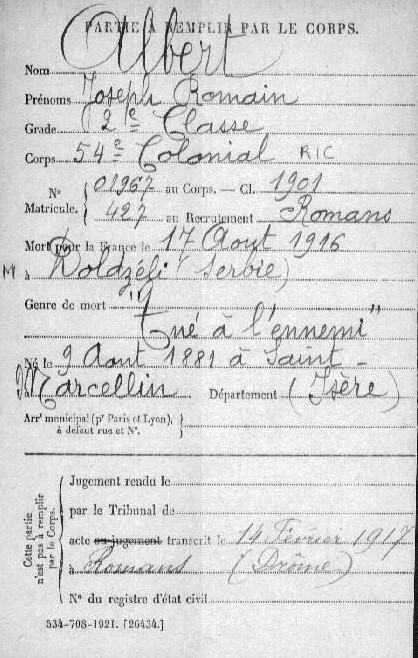 PARTIE À REMPLIR PAR LE CORPS.
Albert
Nom
Prénoms Joseph Romain
Grade 2e Classe
Corps 54e Colonial RIC
N° Matricule. { 01967 au Corps. — Cl. 1901
427 au Recrutement Romans
Mort pour la France le 17 Aout 1916
M à Doldzéli (Serbie)
Genre de mort "Tué à l'ennemi"
Né le 9 Aout 1881 à Saint-
à Marcellin Département (Isère)
Arrt municipal (pr Paris et Lyon), à défaut rue et N°. }
Cette partie n'est pas à remplir par le Corps. {
Jugement rendu le
par le Tribunal de
acte ou jugement transcrit le 14 Février 1917
à Romans (Drôme)
N° du registre d'état civil
534-708-1921. [26434.]